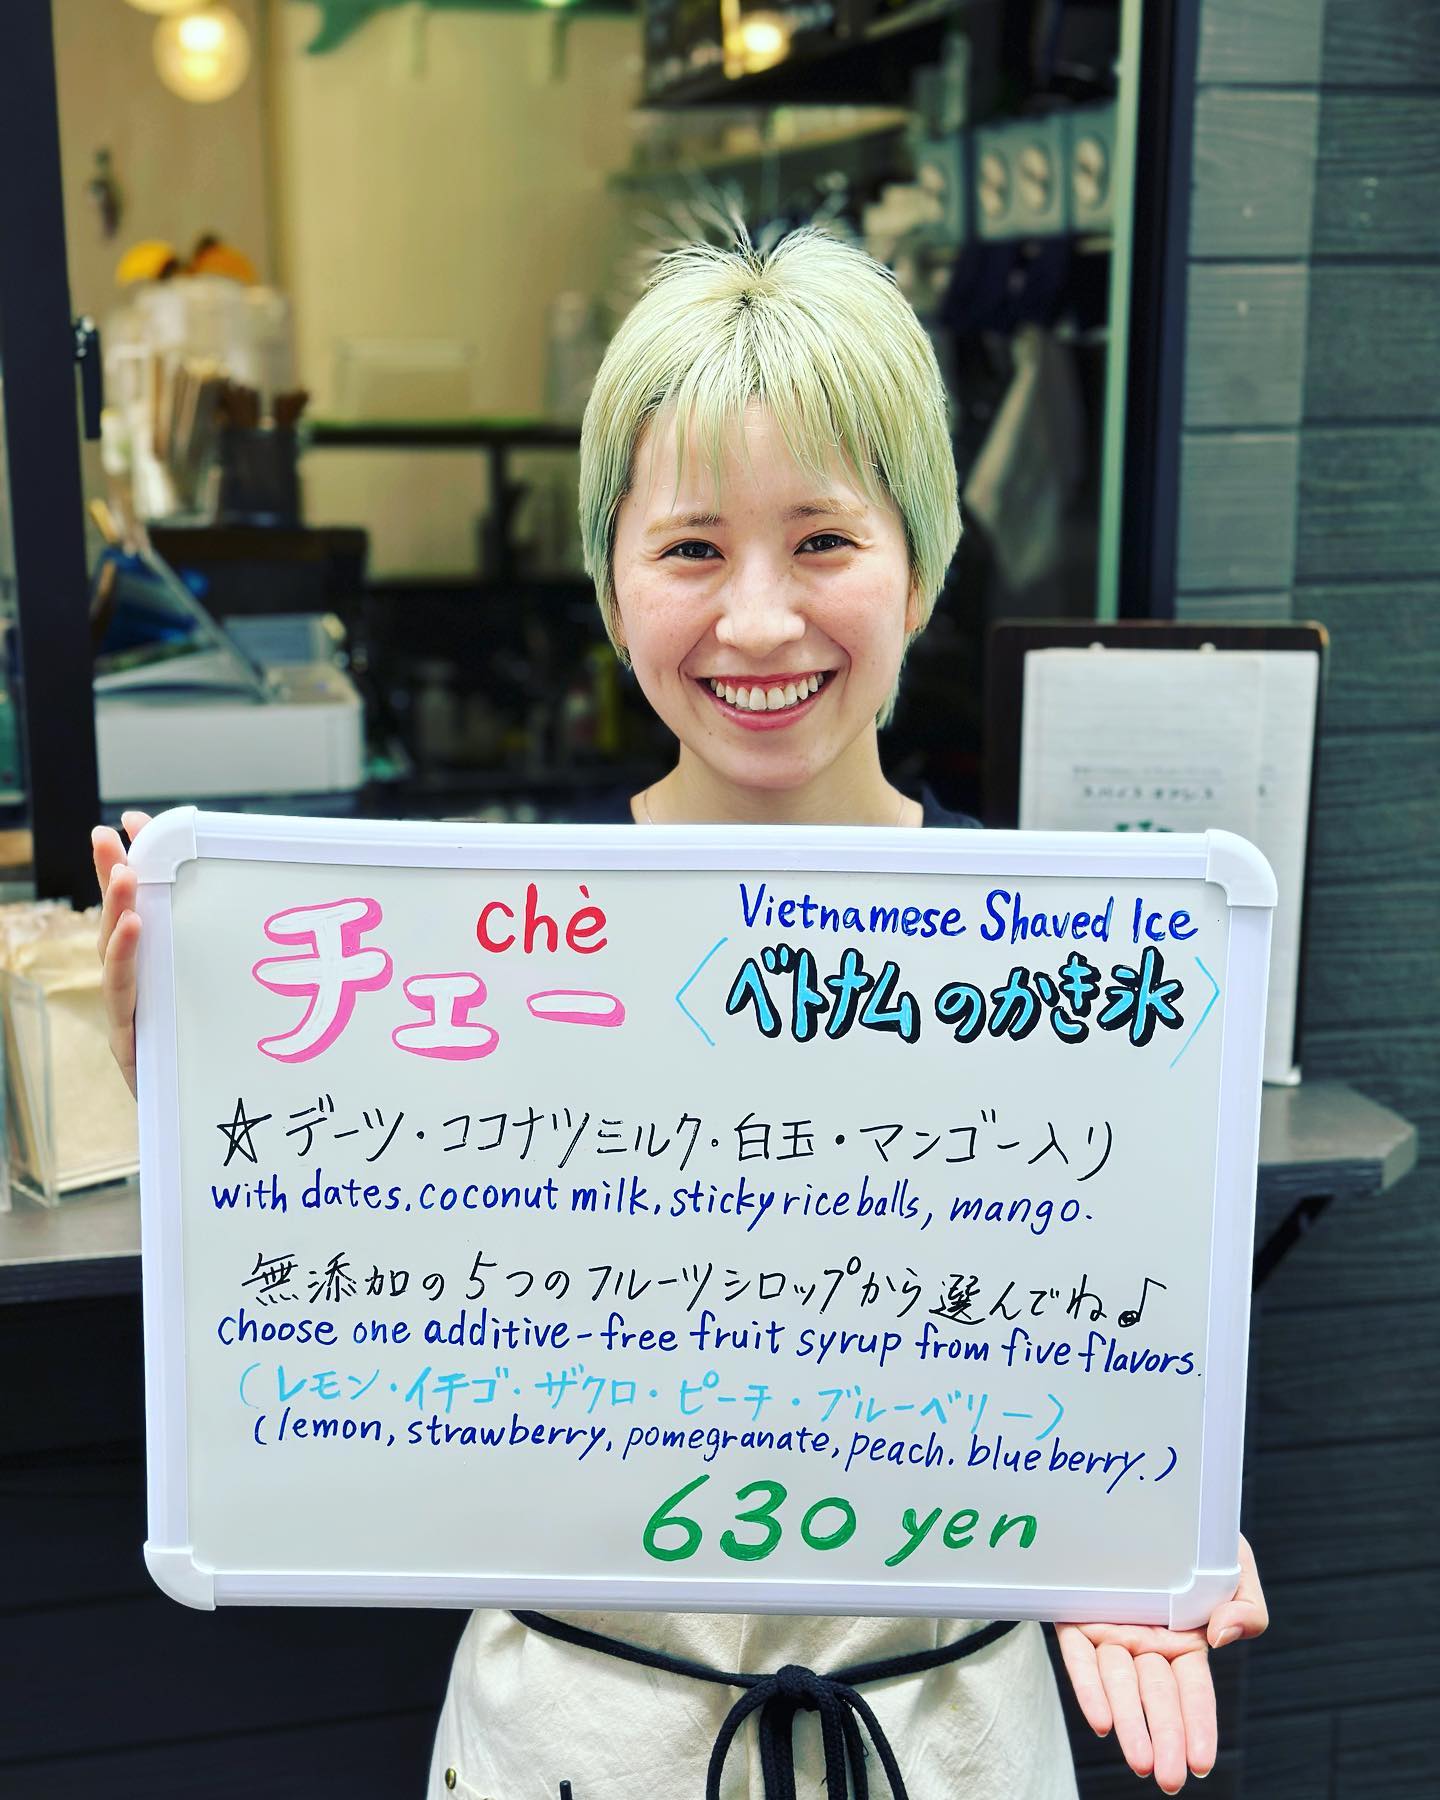 chè
Vietnamese Shaved Ice
チェー
〈ベトナムのかき氷〉
☆デーツ・ココナツミルク・白玉・マンゴー入り
with dates. coconut milk, sticky rice balls, mango.
無添加の5つのフルーツシロップから選んでね♪
choose one additive-free fruit syrup from five flavors.
(レモン・イチゴ・ザクロ・ピーチ・ブルーベリー)
(lemon, strawberry, pomegranate, peach. blueberry.)
630 yen